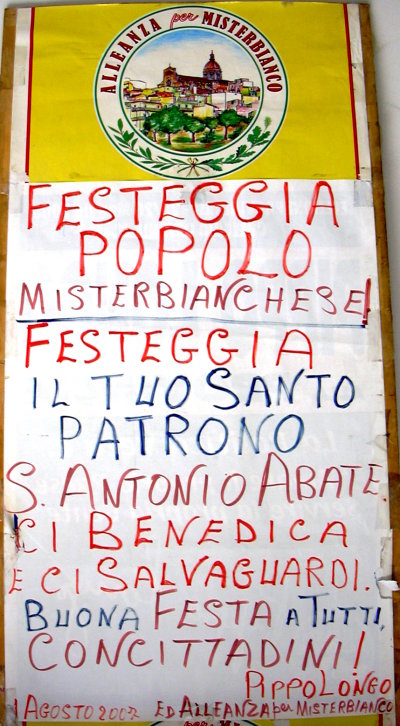 ALLEANZA per MISTERBIANCO
FESTEGGIA
POPOLO
MISTERBIANCHESE!
FESTEGGIA
IL TUO SANTO
PATRONO
S. ANTONIO ABATE.
CI BENEDICA
E CI SALVAGUARDI.
BUONA FESTA A TUTTI,
CONCITTADINI!
PIPPO LONGO
1 AGOSTO 2007 ED ALLEANZA per MISTERBIANCO